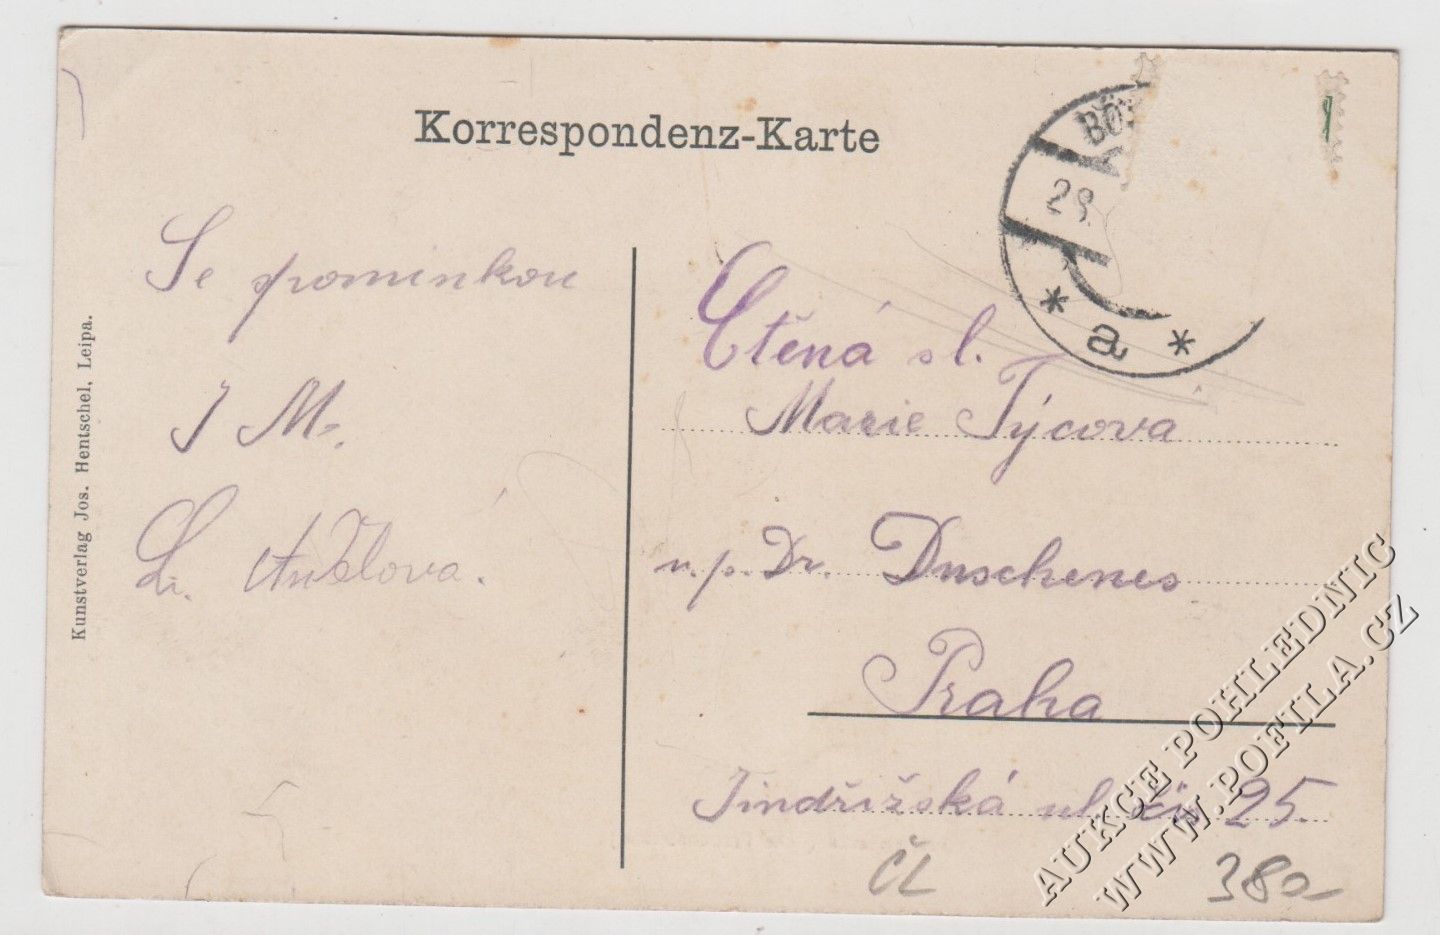 Korrespondenz-Karte
Se spominkou
J M.
Kunstverlag Jos. Hentschel, Leipa.
28.
* a *
Ctěná sl.
Marie Týcová
u. p. Dr. Duschenes
Praha
Jindřižská ul. čís 25.
ČL
380
AUKCE POHLEDNIC
WWW.POFILA.CZ